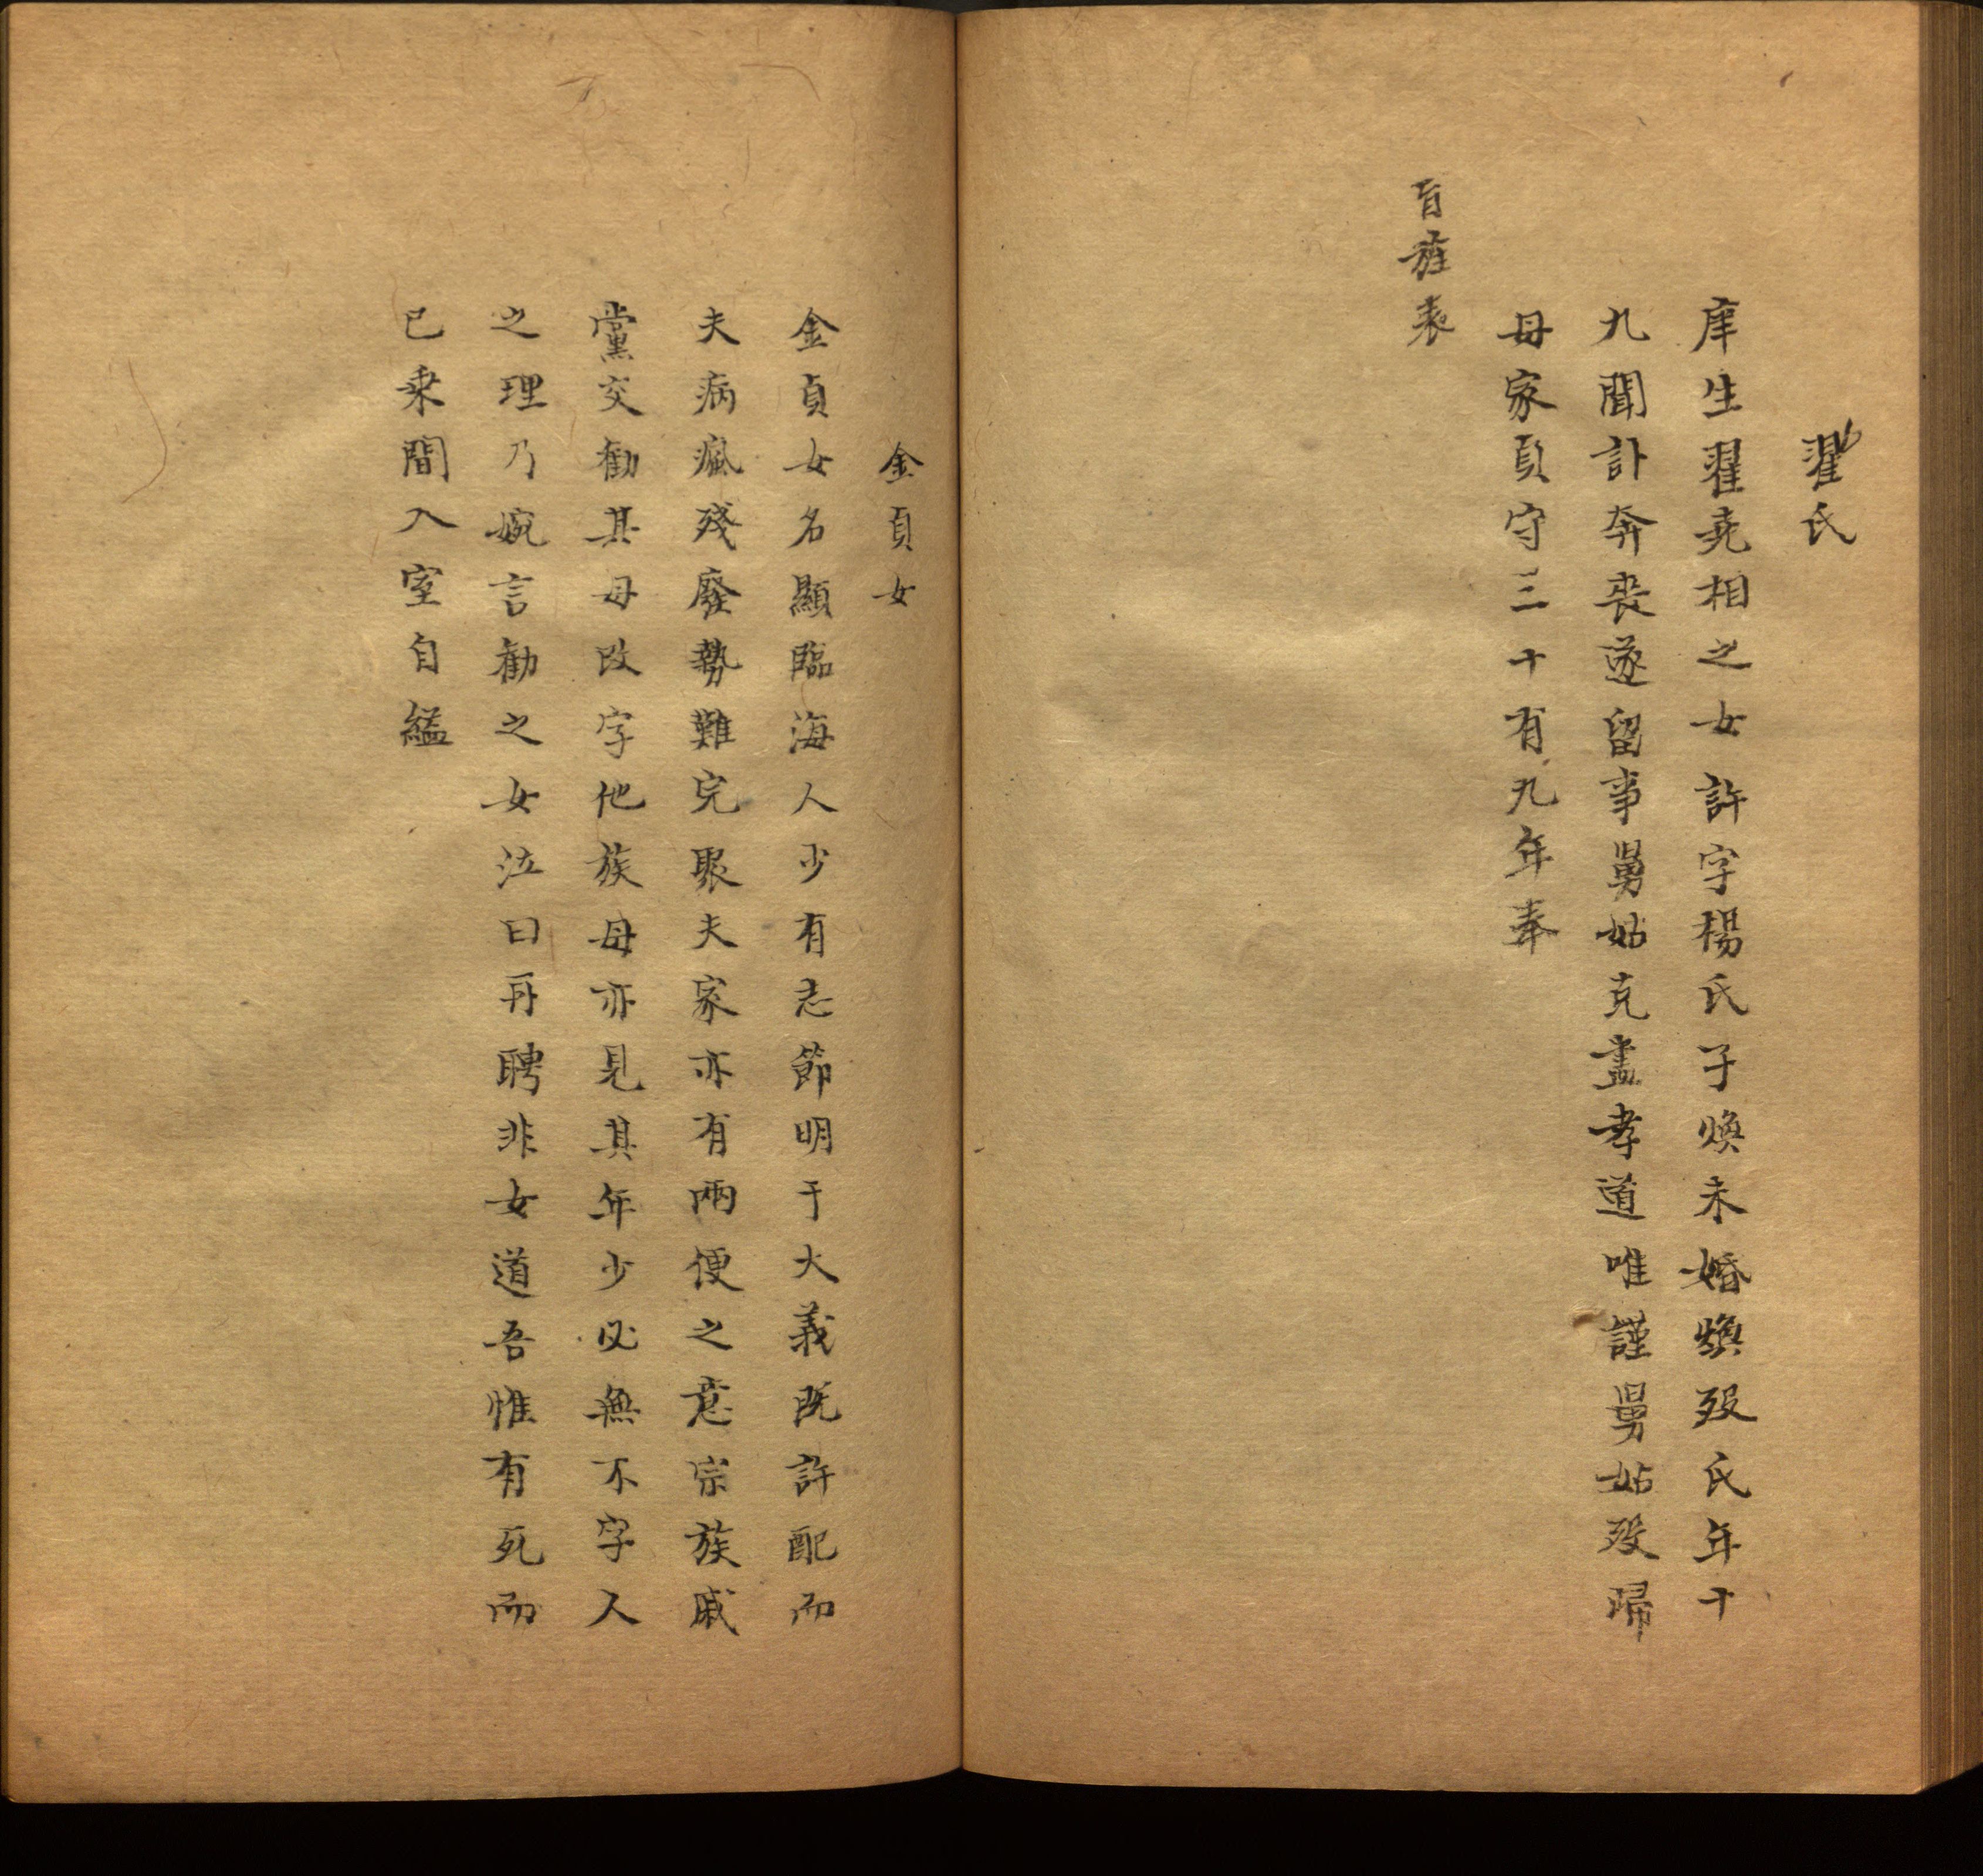 翟氏
庠生翟堯相之女許字楊氏子煥未婚煥歿氏年十
九聞訃奔喪遂留事舅姑克盡孝道唯謹舅姑歿歸
母家貞守三十有九年奉
旨旌表
金貞女
金貞女名顯臨海人少有志節明于大義既許配而
夫病瘋殘廢勢難完聚夫家亦有兩便之意宗族戚
黨交勸其母改字他族母亦見其年少必無不字人
之理乃婉言勸之女泣曰再聘非女道吾惟有死而
已乘間入室自縊